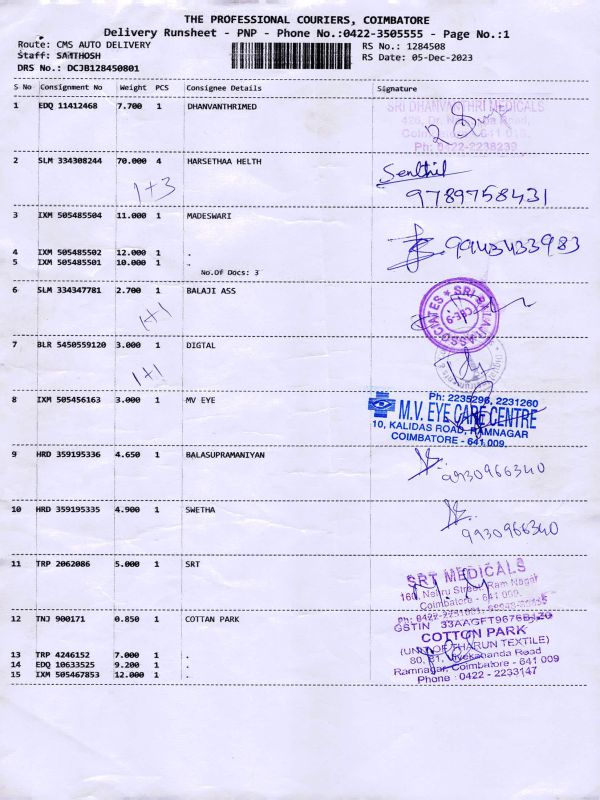 THE PROFESSIONAL COURIERS, COIMBATORE
Delivery Runsheet - PNP - Phone No.:0422-3505555 - Page No.:1
Route: CMS AUTO DELIVERY
RS No.: 1284508
Staff: SANTHOSH
RS Date: 05-Dec-2023
DRS No.: DCJB128450801
S No Consignment No Weight PCS Consignee Details Signature
1 EDQ 11412468 7.700 1 DHANVANTHRIMED
SRI DHANVANTHRI MEDICALS
426, Dr. Road,
Coimbatore - 641
Ph: 0422-2238239
2 SLM 334308244 70.000 4 HARSETHAA HELTH
1+3
Senthil
9789758431
3 IXM 505485504 11.000 1 MADESWARI
9943433983
4 IXM 505485502 12.000 1 .
5 IXM 505485501 10.000 1 .
No.Of Docs: 3
6 SLM 334347781 2.700 1 BALAJI ASS
1+1
SRI BALAJI ASSOCIATES
CBE-9
7 BLR 5450559120 3.000 1 DIGTAL
1+1
8 IXM 505456163 3.000 1 MV EYE
Ph: 2235296, 2231260
M.V. EYE CARE CENTRE
10, KALIDAS ROAD, RAMNAGAR
COIMBATORE - 641 009.
9 HRD 359195336 4.650 1 BALASUPRAMANIYAN
9930966340
10 HRD 359195335 4.900 1 SWETHA
9930966340
11 TRP 2062086 5.000 1 SRT
SRT MEDICALS
160, Nehru Street, Ram Nagar
Coimbatore - 641 009.
12 TNJ 900171 0.850 1 COTTAN PARK
COTTON PARK
(UNIT OF THARUN TEXTILE)
80, 81, Vivekananda Road
Ramnagar, Coimbatore - 641 009
Phone : 0422 - 2233147
13 TRP 4246152 7.000 1 .
14 EDQ 10633525 9.200 1 .
15 IXM 505467853 12.000 1 .